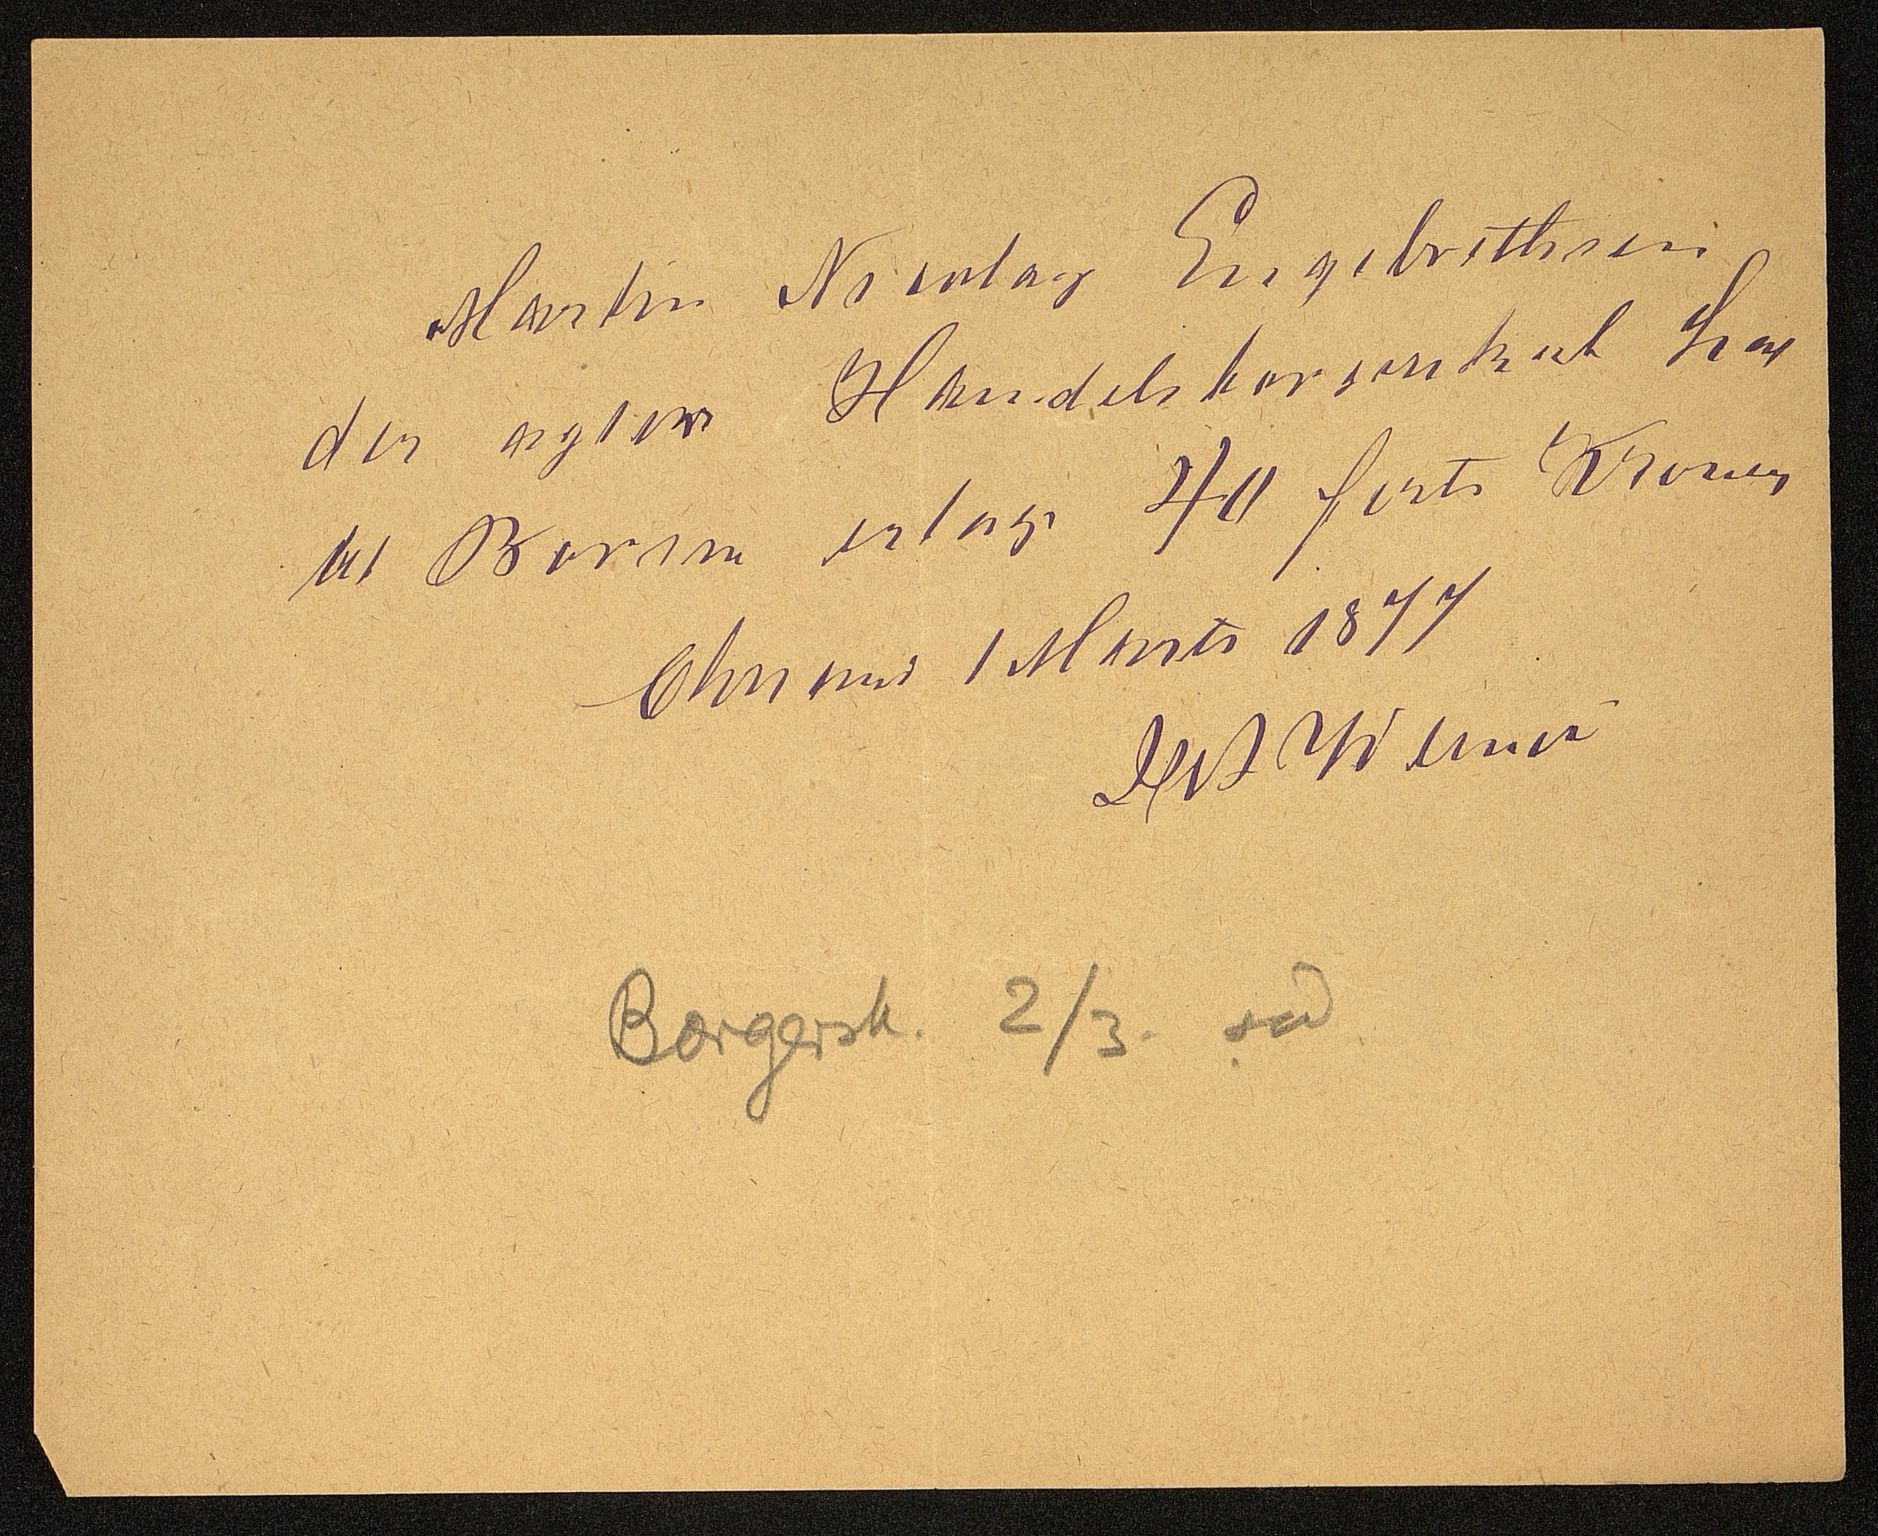 Martin Nicolay Engebrethsen
der agter Handelsborgerskab har
til Børsen erlagt 40 førti Kroner
Chrania 1 Marts 1877
Borgersk. 2/3.